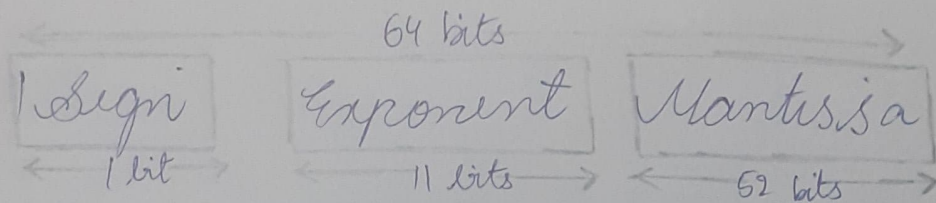 64 bits
Sign Exponent Mantissa
1 bit 11 bits 52 bits